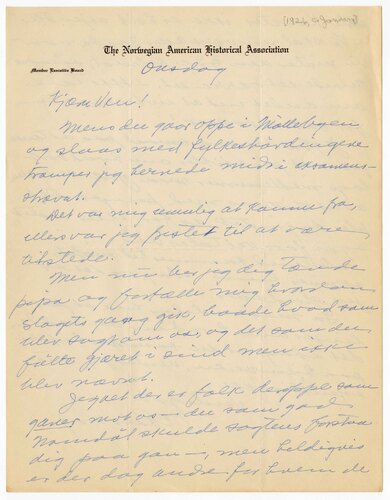 (1926, January)
The Norwegian American Historical Association
Member Executive Board
Onsdag
Kjære Ven!
Mens du gaar oppe i Møllebyen
og slaas med fylkeshövdingene
tramper jeg hernede midt i examens-
strævet.
Det var mig umulig at komme fra,
ellers var jeg fristet til at være
tilstede.
Men nu ber jeg dig tænde
pipa og fortælle mig hvordan
slagets gang gik, baade hvad som
blev sagt om os, og det som den
følte hjæret i sind men ikke
blev nævnt.
Jeg vet der er folk deroppe som
ganer mot os — du som god
Namdøl skulde sagtens forstaa
dig paa gan —, men heldigvis
er der dog andre for hvem de